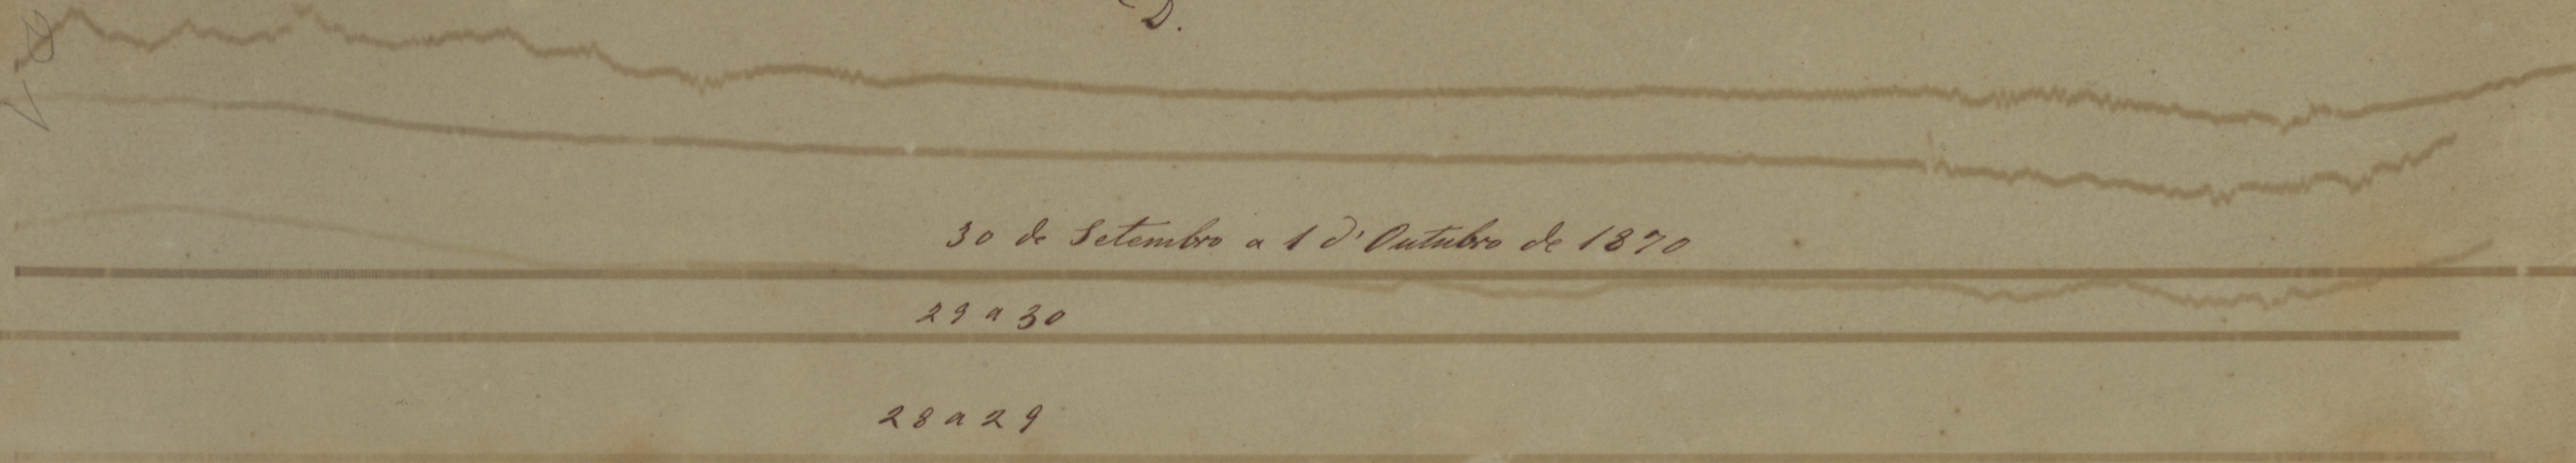 D.
30 de Setembro a 1 d'Outubro de 1870
29 a 30
28 a 29